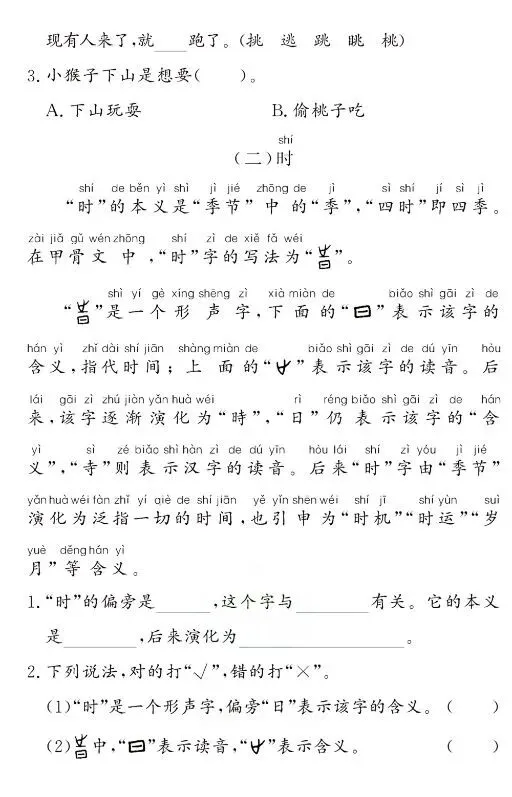 现有人来了,就____跑了。(挑 逃 跳 眺 桃)
3. 小猴子下山是想要(  )。
A. 下山玩耍 B. 偷桃子吃
shí
(二)时
shí de běn yì shì jì jié zhōng de jì sì shí jí sì jì
“时”的本义是“季节”中的“季”,“四时”即四季。
zài jiǎ gǔ wén zhōng shí zì de xiě fǎ wéi
在甲骨文中,“时”字的写法为“ ”。
shì yí gè xíng shēng zì xià miàn de biǎo shì gāi zì de
“ ”是一个形声字,下面的“ ”表示该字的
hán yì zhǐ dài shí jiān shàng miàn de biǎo shì gāi zì de dú yīn hòu
含义,指代时间;上面的“ ”表示该字的读音。后
lái gāi zì zhú jiàn yǎn huà wéi rì réng biǎo shì gāi zì de hán
来,该字逐渐演化为“時”,“日”仍表示该字的“含
yì sì zé biǎo shì hàn zì de dú yīn hòu lái shí zì yóu jì jié
义”,“寺”则表示汉字的读音。后来“时”字由“季节”
yǎn huà wéi fàn zhǐ yí qiè de shí jiān yě yǐn shēn wéi shí jī shí yùn suì
演化为泛指一切的时间,也引申为“时机”“时运”“岁
yuè děng hán yì
月”等含义。
1. “时”的偏旁是______,这个字与________有关。它的本义
是________,后来演化为__________________。
2. 下列说法,对的打“√”,错的打“×”。
(1)“时”是一个形声字,偏旁“日”表示该字的含义。(  )
(2) 中,“ ”表示读音,“ ”表示含义。 (  )